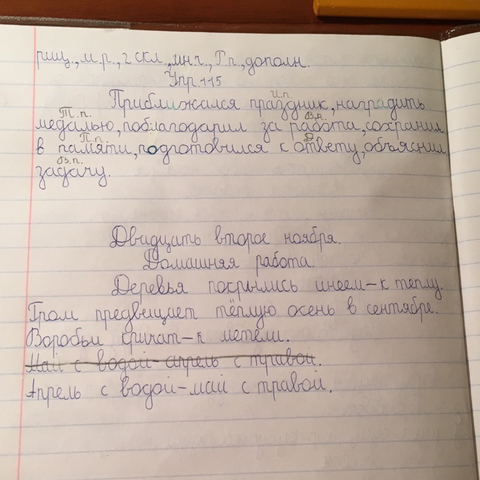 рищ., м.р., 2 скл., ин.ч., Т.п., дополн.
Упр 115
И.п.
Приближался праздник, наградить
Т.п. В.п.
медалью, поблагодарил за работа, сохранил
П.п. Д.п.
в памяти, подготовился к ответу, объяснил
В.п.
задачу.
Двидцать второе ноября.
Домашняя работа.
Деревья покрылись инеем-к теплу.
Гром предвещает тёплую осень в сентябре.
Воробьи кричат-к метели.
Май с водой-апрель с травой.
Апрель с водой-май с травой.